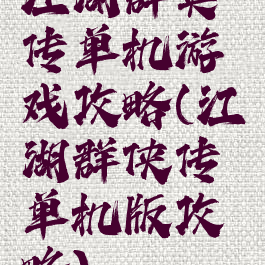 江湖群英
传单机游
戏攻略(江
湖群侠传
单机版攻
略)